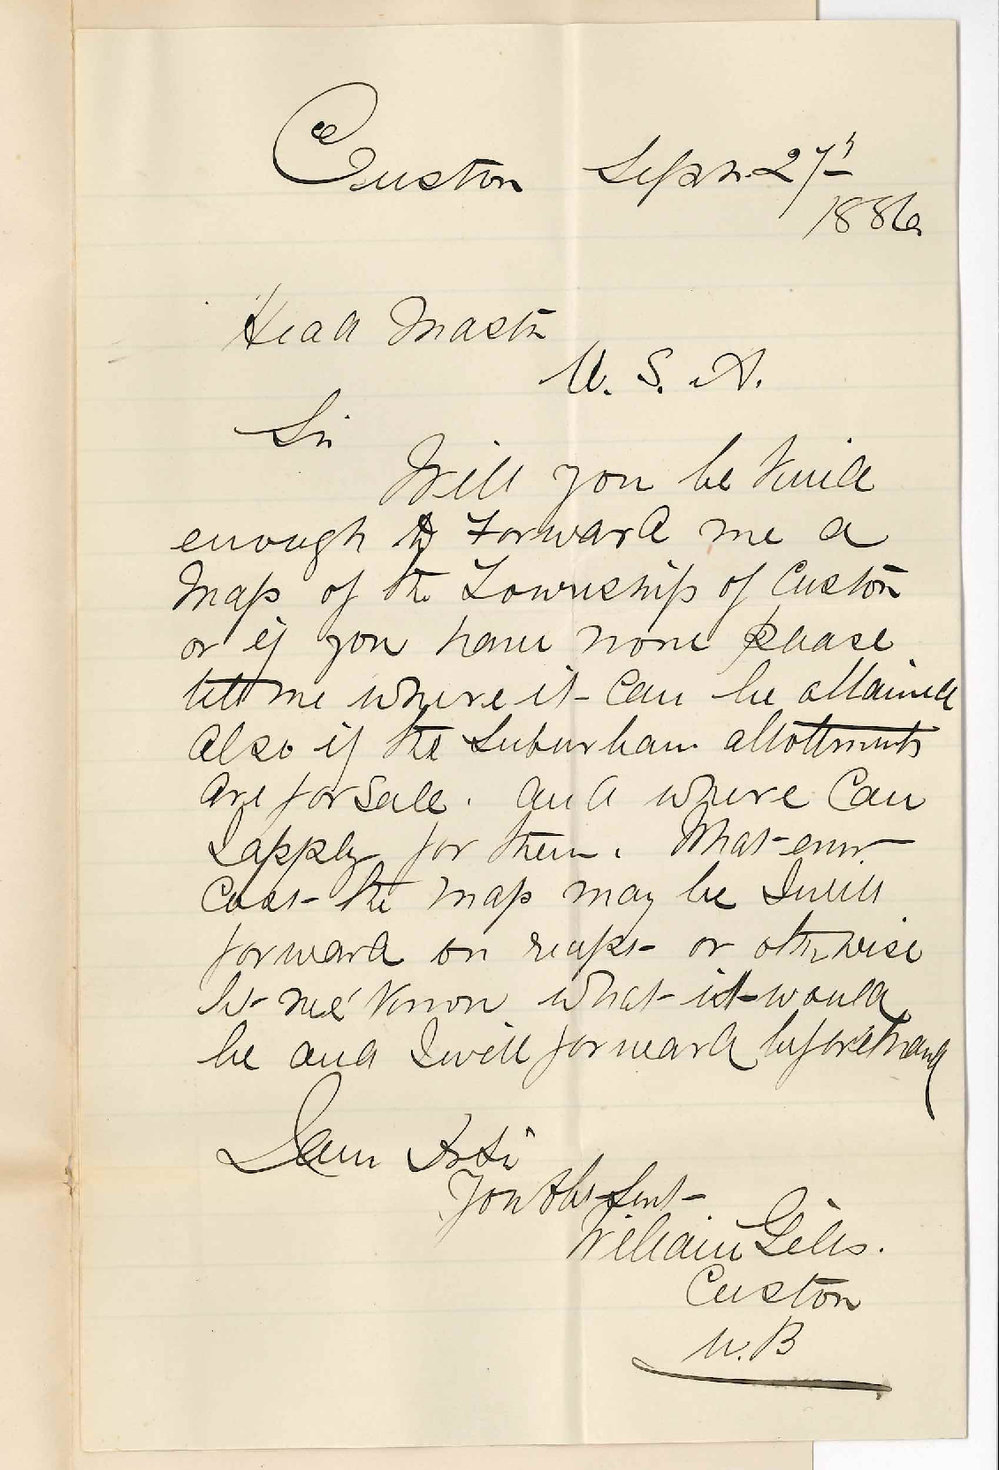 Custon Septr. 27th
1886
Head Master
U. S. A.
Sir
Will you be kind
enough to Forward me a
Map of the Township of Custon
or if you have none please
tell me where it can be attained
Also if the Suburban allottments
are for Sale. and where Can
I apply for them. What ever
Cost the map may be I will
forward on or otherwise
let me know what it would
be and I will forward beforehand
I am Sir
Your Obt Servt
William Giles.
Custon
N. B